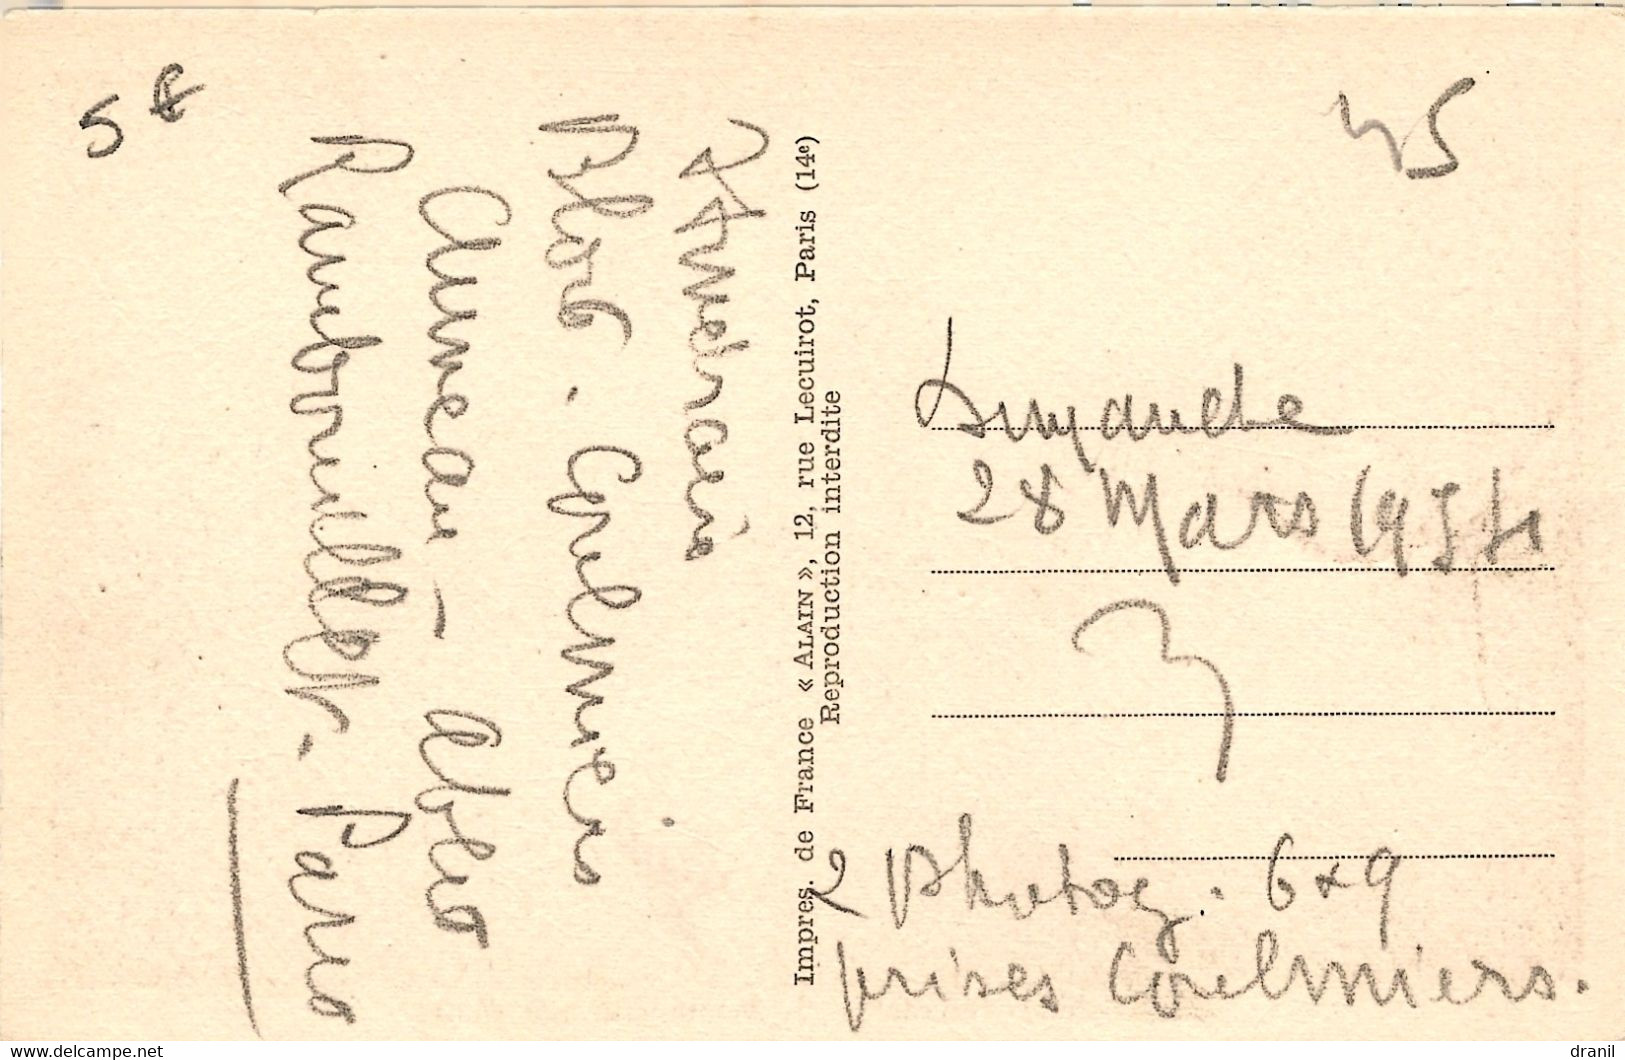 5 €
45
Itinéraire
Blois. Coulmiers
Auneau - Ablis
Rambouillet. Paris
Impres. de France « ALAIN », 12, rue Lecuirot, Paris (14e)
Reproduction interdite
Dimanche
28 Mars 1954
2 photos. 6x9
prises Coulmiers.
www.delcampe.net
dranil